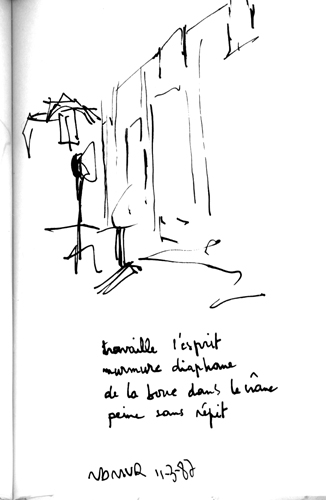 travaille l'esprit
murmure diaphane
de la boue dans le crâne
peine sans répit
11-3-87